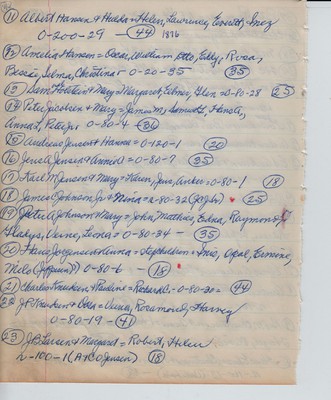 (11) Albert Hansen & Huldha = Helen, Lawrence, Everett, Inez
0-200-29 - (44) 1876
(12) Amelia Hansen = Oscar, William, Otto, Eddy, Rosa,
Bessie, Selma, Christina = 0-20-35 (35)
(13) Sam Holstein & Mary = Margaret, Elmer, Glen = 0-80-28 (25)
(14) Peter Jacobsen & Mary = James M, Samuel L,
Anna L, Peter Jr 0-80-4 - (36)
(15) Andreas Jensen & Hanna = 0-120-1 (20)
(16) Jens A Jensen & Anna = 0-80-7 (35)
(17) Karl M Jensen & Mary = Karen, Jens, Anker = 0-80-1 (18)
(18) James C Johnson Jr & Nina = 2-80-32 (25)
(19) Peter A Johnson & Mary = John, Matthew, Edna, Raymond,
Gladys, Verne, Leona = 0-80-34 - (35)
(20) Hans Jorgensen & Anna = Stepchildren = Iris, Opal, Ermine,
Milo (Jeppesen) 0-80-6 - (18)
(21) Charles Knudsen & Pauline = Richard C. - 0-80-20 = (44)
(22) J P Knudsen & Olea = Verna, Rosamond, Harvey
0-80-19 - (41)
(23) J B Larsen & Margaret = Robert, Helen
2-100-1 (A & C O Jensen) (18)